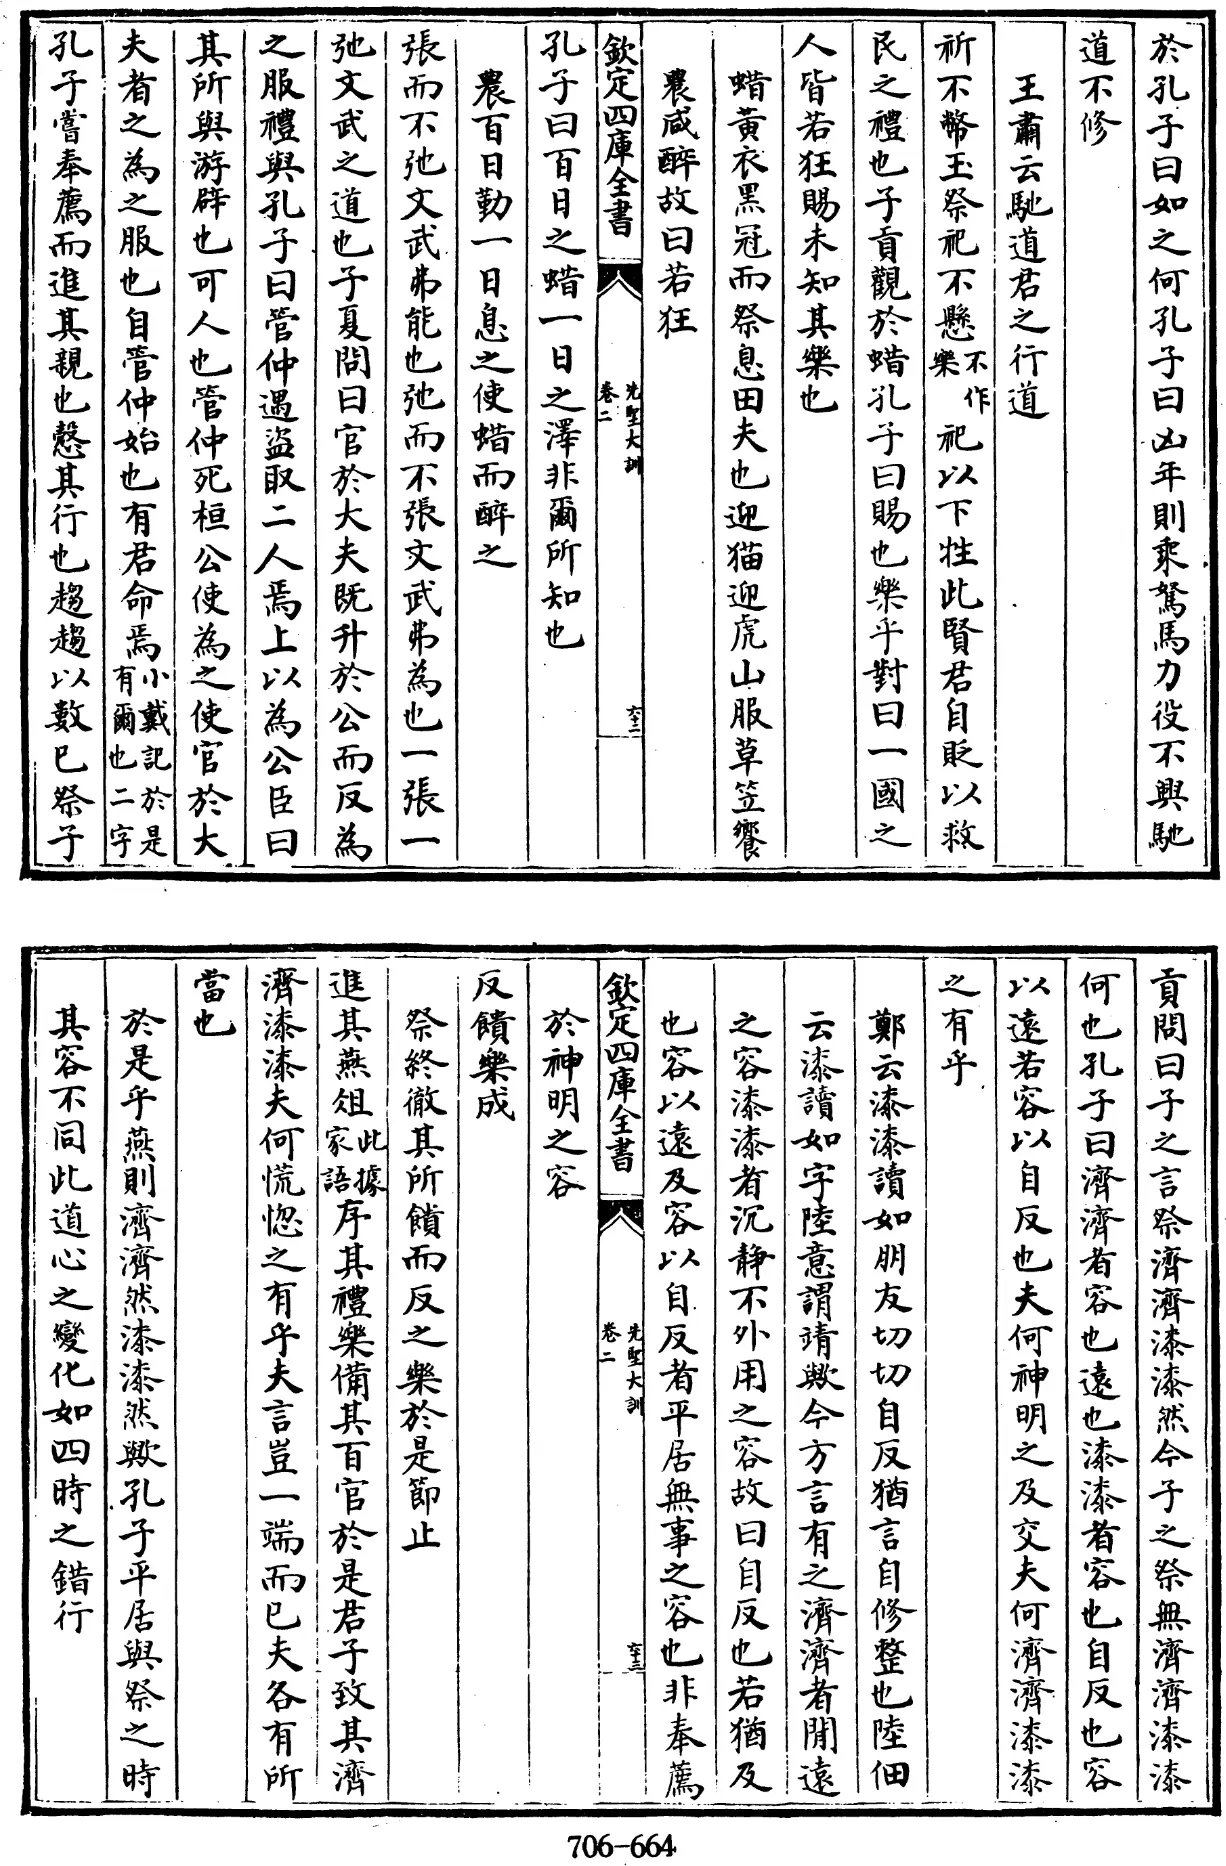 於孔子曰如之何孔子曰凶年則乘駑馬力役不興馳
道不修
王肅云馳道君之行道
祈不幣玉祭祀不懸不作樂祀以下牲此賢君自貶以救
民之禮也子貢觀於蜡孔子曰賜也樂乎對曰一國之
人皆若狂賜未知其樂也
蜡黃衣黑冠而祭息田夫也迎猫迎虎山服草笠饗
農咸醉故曰若狂
欽定四庫全書
先聖大訓
卷二
六十二
孔子曰百日之蜡一日之澤非爾所知也
農百日勤一日息之使蜡而醉之
張而不弛文武弗能也弛而不張文武弗為也一張一
弛文武之道也子夏問曰官於大夫既升於公而反為
之服禮與孔子曰管仲遇盜取二人焉上以為公臣曰
其所與游辟也可人也管仲死桓公使為之使官於大
夫者之為之服也自管仲始也有君命焉小戴記於是有爾也二字
孔子嘗奉薦而進其親也慤其行也趨趨以數已祭子
貢問曰子之言祭濟濟漆漆然今子之祭無濟濟漆漆
何也孔子曰濟濟者容也遠也漆漆者容也自反也容
以遠若容以自反也夫何神明之及交夫何濟濟漆漆
之有乎
鄭云漆漆讀如朋友切切自反猶言自修整也陸佃
云漆讀如字陸意謂靖歟今方言有之濟濟者閒遠
之容漆漆者沉靜不外用之容故曰自反也若猶及
也容以遠及容以自反者平居無事之容也非奉薦
欽定四庫全書
先聖大訓
卷二
六十三
於神明之容
反饋樂成
祭終徹其所饋而反之樂於是節止
進其燕俎此據家語序其禮樂備其百官於是君子致其濟
濟漆漆夫何慌惚之有乎夫言豈一端而已夫各有所
當也
於是乎燕則濟濟然漆漆然歟孔子平居與祭之時
其容不同此道心之變化如四時之錯行
706-664